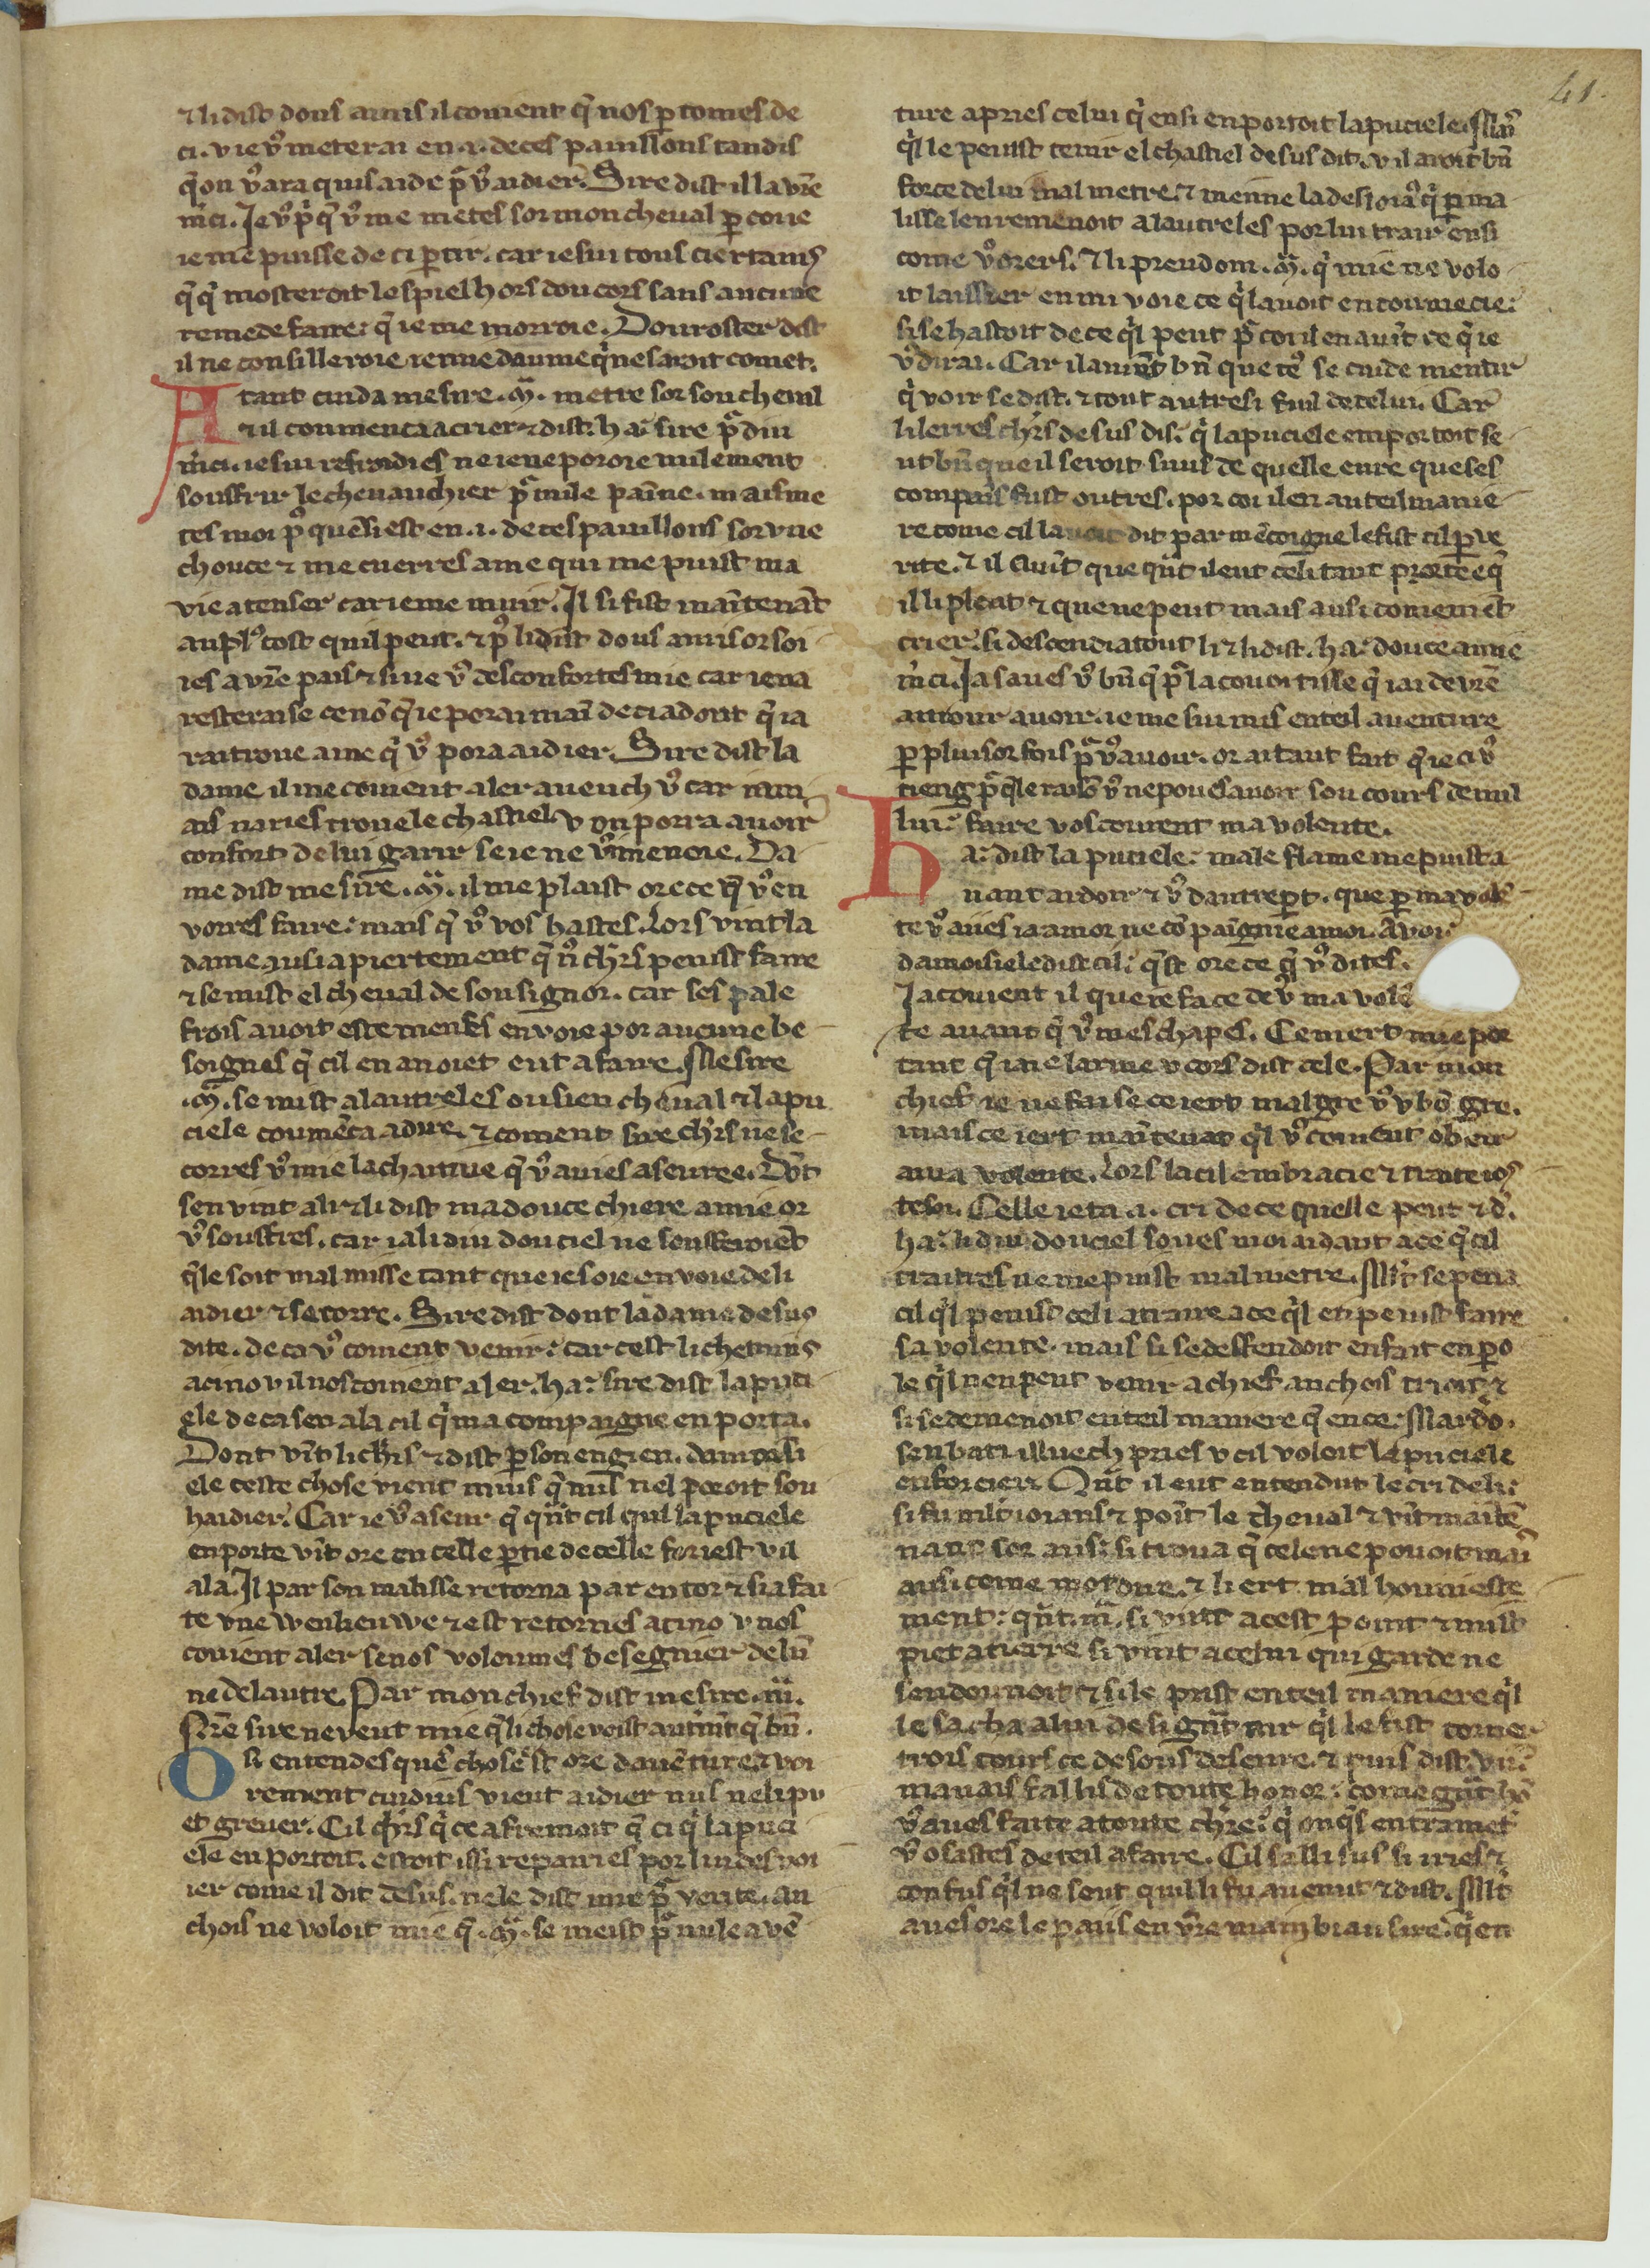 41.
⁊ li dist dous amis il couient q̃ nos ꝑtomes de
ci. v ie vꝰ meterai en .i. de ces pauillons tandis
q̃ on vꝰ ara quis aide pͬ vꝰ aidier. Sire dist il la vr̃e
m̃ci. Je vꝰ p̃ q̃ vꝰ me metes sor mon cheual ꝑ coue
ie me puisse de ci ꝑtir. car ie sui tous ciertains
q̃ q̃ mosteroit lespiel hors dou cors sans aucune
remede faire: q̃ ie me morroie. Dou roster dist
il ne consilleroie ie mie daume q̃ ne saroit comẽt.
Atant cuida mesire .Gͣ. metre sor son cheual
⁊ il coumenca a crier ⁊ dist: ha: sire pͬ diu
m̃ci. ie sui refroidies ne ie ne poroie nulement
souffrir le cheuauchier pͬ nule paine. mais me
tes moi
en .i. de ces pauillons sor vne
chouce ⁊ me cuerres ame qui me puist ma
vie atenser car ie me muir. Il si fist maĩtenãt
au plꝰ tost quil peut. ⁊ pͥ li dist dous amis or soi
ies a vr̃e pais ⁊ si ne vꝰ desconfortes mie car ie na
resterai se ce nõ q̃ ie porai mai de ci adont q̃ ia
rai troue ame q̃ vꝰ pora aidier. Sire dist la
dame il me couient aler auench vꝰ car iam
ais naries troue le chastiel v on porra auoir
confort de lui garir se ie ne vꝰ i menoie. Da
me dist mesire .Gͣ. il me plaist ore ce q̃ vꝰ en
vorres faire: mais q̃ vꝰ vos hastes. Lors vint la
dame ausi apiertement q̃ nꝰ chꝛs peuist faire
⁊ se mist el cheual de son signor. car ses pale
frois auoit este menes en voie por aucune be
soignes q̃ cil en auoiet eut a faire. Mesire
.Gͣ. se mist a lautre les ou sien cheual ⁊ la pu
ciele coumẽca a dire. ⁊ coment sire chꝛs ne se
corres vꝰ mie la chaitiue q̃ vꝰ auies aseuree. Dõt
sen vint a li ⁊ li dist ma douce chiere amie or
vꝰ souffres. car ia li diu dou ciel ne souffrroiẽt
q̃le soit mal misse tant que ie soie en voie de li
aidier ⁊ secorre. Sire dist dont la dame desus
dite. de ca vꝰ couient venir: car cest li chemins
acino v il nos couient aler. ha: sire dist la puci
ele de ca sen ala cil q̃ ma compaigne en porta.
Dont vĩt li chꝛs ⁊ dist ꝑ son engien. damoisi
ele ceste chose vient mius q̃ nus nel poroit sou
haidier. Car ie vꝰ aseur q̃ qñt cil qui la puciele
en porte vĩt ore en celle ꝑtie de celle foriest v il
ala. Il par son malisse retorna par entor ⁊ si a fai
te vne wenkenwe ⁊ est retornes acino v nos
couient aler se nos volounmes besegnier de lũ
ne de lautre. Par mon chief dist mesire .Gͣ.
Nr̃e sire ne veut mie q̃ li chose voist autrm̃t q̃ bñ.
Osi entendes que chose est ore dauẽture. ⁊ voi
rement cui dius vient aidier nus ne li pu
et greuer. Cil chꝛs q̃ ce afremoit q̃ ci q̃ la puci
ele en portoit. estoit issi repairies por lui desvoi
ier come il dit desus. ne le dist mie pͬ verite. an
chois ne voloit mie q̃ .Gͣ. se meist pͬ nule auẽ
ture apries celui q̃ ensi en portoit la puciele. Mais
q̃l le peuist tenir el chastiel desus dit. v il auoit bñ
force de lui mal metre. ⁊ meime la
q̃ ꝑ ma
lisse len remenoit a lautre les por lui trair ensi
come vꝰ orers. ⁊ li preudom .Gͣ. q̃ mie ne volo
it laissier en mi voie ce q̃ lauoit encoumecie:
si se hastoit de ce q̃l peut pͬ coi il en auĩt ce q̃ ie
vꝰ dirai. Car il auint bñ que teꝰ se cuide mentir
q̃ voir se dist. ⁊ tout autresi fuil de celui. Car
li lerres chꝛs desus dis. q̃ la puciele emportoit se
ut bñ que il seroit siuis de quelle eure que ses
compaĩs fust outres. por coi il en auteil manie
re come cil lauoit dit par mẽcoigne le fist cil ꝑ ve
rite. ⁊ il auĩt que qñt il eut celi tant portee q̃
il li pleut ⁊ que ne peut mais ausi coumemẽt
crier. si descendi a tout li ⁊ li dist. ha: douce amie
m̃ci. Ja saues vꝰ bñ q̃ pͬ la couoitisse q̃ iai de vr̃e
amour auoir. ie me sui mis en teil auenture
ꝑ pluisor fois pͬ vꝰ auoir. or ai tant fait q̃ ie ci vꝰ
tieng pͬ q̃le raisõ vꝰ ne poues auoir son cours de nul
lui: faire vos couient ma volente.
Ha: dist la puciele: male flame me puist a
uant ardoir ⁊ vꝰ dautre ꝑt. que ꝑ ma volẽ
te vꝰ aiies ia amor ne cõpaignie a moi. Auoi
damoisiele dist cil: q̃st ore ce q̃ vꝰ dites.
Ja couient il que ie face de vꝰ ma volẽ
te auant q̃ vꝰ meschapes. Ce niert mie por
tant q̃ iaie larme v cors dist cele. Par mon
chief ie ne sai se ce iert malgre vꝰ v bõ gre.
mais ce iert maĩtenãt q̃l vꝰ couient obeir
a ma volente. Lors la cil embracie ⁊ traite ios
Celle ieta .i. cri de ce quelle peut ⁊ d.
ha: li diu dou ciel soies moi aidant a ce q̃ cil
traitres ne me puist mal metre. Ml̃t se pena
cil q̃l peuist celi atraire a ce q̃l en peuist faire
sa volente. mais si se deffendoit en fait en ꝑo
le q̃l nen peut venir a chief anchois crioit ⁊
si se demenoit en teil maniere q̃
sen bati illuech pries v cil voloit la puciele
enforcier. Qñt il eut entendut le cri deli:
si fu ml̃t ioians ⁊ poĩt le cheual ⁊ vĩt maĩte
nant sor aus: si troua q̃ cele ne pouoit mais
ausi come mot dire. ⁊ li ert mal houniesté
ment: qñt .Gͣ. si vint a cest point ⁊ mist
piet a tierre si vint a celui qui garde ne
sen dounoit ⁊ si le prist en teil maniere q̃l
le sacha a lui de si grãt air q̃l le fist torner
trois tours ce desous deseure. ⁊ puis dist.
mauais fallis de toute honor: come grãt hõ
vꝰ aues faite a toute chꝛie: q̃ onq̃s entramet
vꝰ osastes de teil afaire. Cil salli sus si iries ⁊
confus q̃l ne seut quil li fu auenut ⁊ dist. Ml̃t
aues ore le pais en vr̃e main biau sire. q̃ en